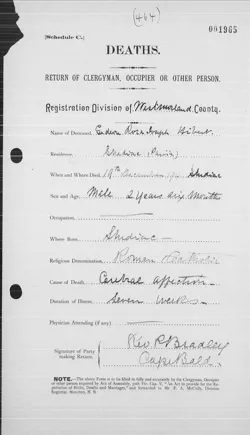 (464)
001965
(Schedule C.)
DEATHS.
RETURN OF CLERGYMAN, OCCUPIER OR OTHER PERSON.
Registration Division of Westmorland County.
Name of Deceased, Joseph Hibert
Residence, Shediac
When and Where Died, 19th December Shediac
Sex and Age, Male 2 Years six Months
Occupation,
Where Born, Shediac
Religious Denomination, Roman Catholic
Cause of Death, Cerebral affection
Duration of Illness, Seven Weeks
Physician Attending (if any)
Signature of Party making Return, Rev. P. Bradley
Cape Bald
NOTE.—The above Form is to be filled in fully and accurately by the Clergyman, Occupier or other person required by Act of Assembly,